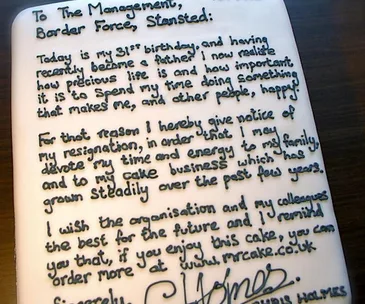 To The Management,
Border Force, Stansted:
Today is my 31st birthday, and having
recently become a father I now realise
how precious life is and how important
it is to spend my time doing something
that makes me, and other people, happy.
For that reason I hereby give notice of
my resignation, in order that I may
devote my time and energy to my family,
and to my cake business which has
grown steadily over the past few years.
I wish the organisation and my colleagues
the best for the future and I remind
you that, if you enjoy this cake, you can
order more at www.mrcake.co.uk
Sincerely,
C Holmes.
HOLMES